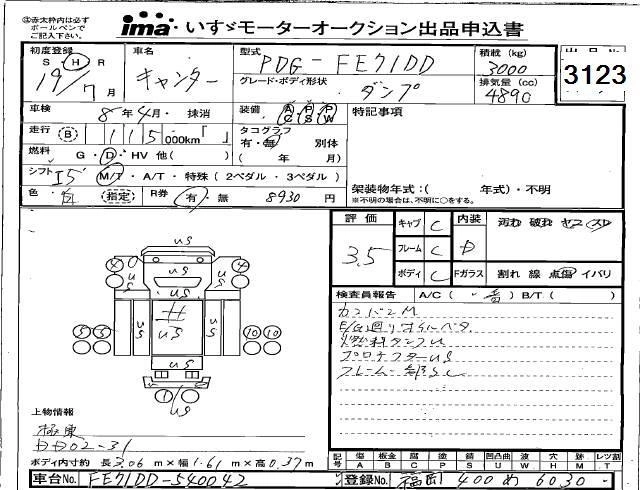 ㊟赤太枠内は必ず
ボールペンで
ご記入下さい。
ima いすゞモーターオークション出品申込書
初度登録 車名 型式 積載(kg) 出品No.
S H R キャンター PDG-FE71DD 3000 3123
19/7月 グレード・ボディ形状 ダンプ 排気量(cc) 4890
車検 8年4月・抹消 装備 AC PS PW 特記事項
走行 B 115000km「 」 タコグラフ 有・無 別体
燃料 G・D・HV 他( ) ( 年 月)
シフト I5 M/T・A/T・特殊(2ペダル・3ペダル)
架装物年式:( 年式)・不明
色 白 (指定) R券 有・無 8930円
※不明の場合は、不明に○をする。
評価 3.5 キャブ C 内装 D 汚れ 破れ ヤニ スレ
フレーム C
ボディ C Fガラス 割れ 線 点傷 イバリ
検査員報告 A/C( ) B/T( )
カウバンM
E/G廻りオイルベタ
燃料タンクU
プロテクターUS
フレーム 部SC
US
4 US 4
US US US US
5 3 10 10
US
1 US
上物情報
極東
DD02-31
ボディ内寸約 長3.06m×幅1.61m×高0.37m
記号 傷A 板金B 腐C 塗P 錆S 凹凸曲U 波W 穴H 跡M レツ割T
車台No. FE71DD-540042 登録No. 福岡 400 め 6030